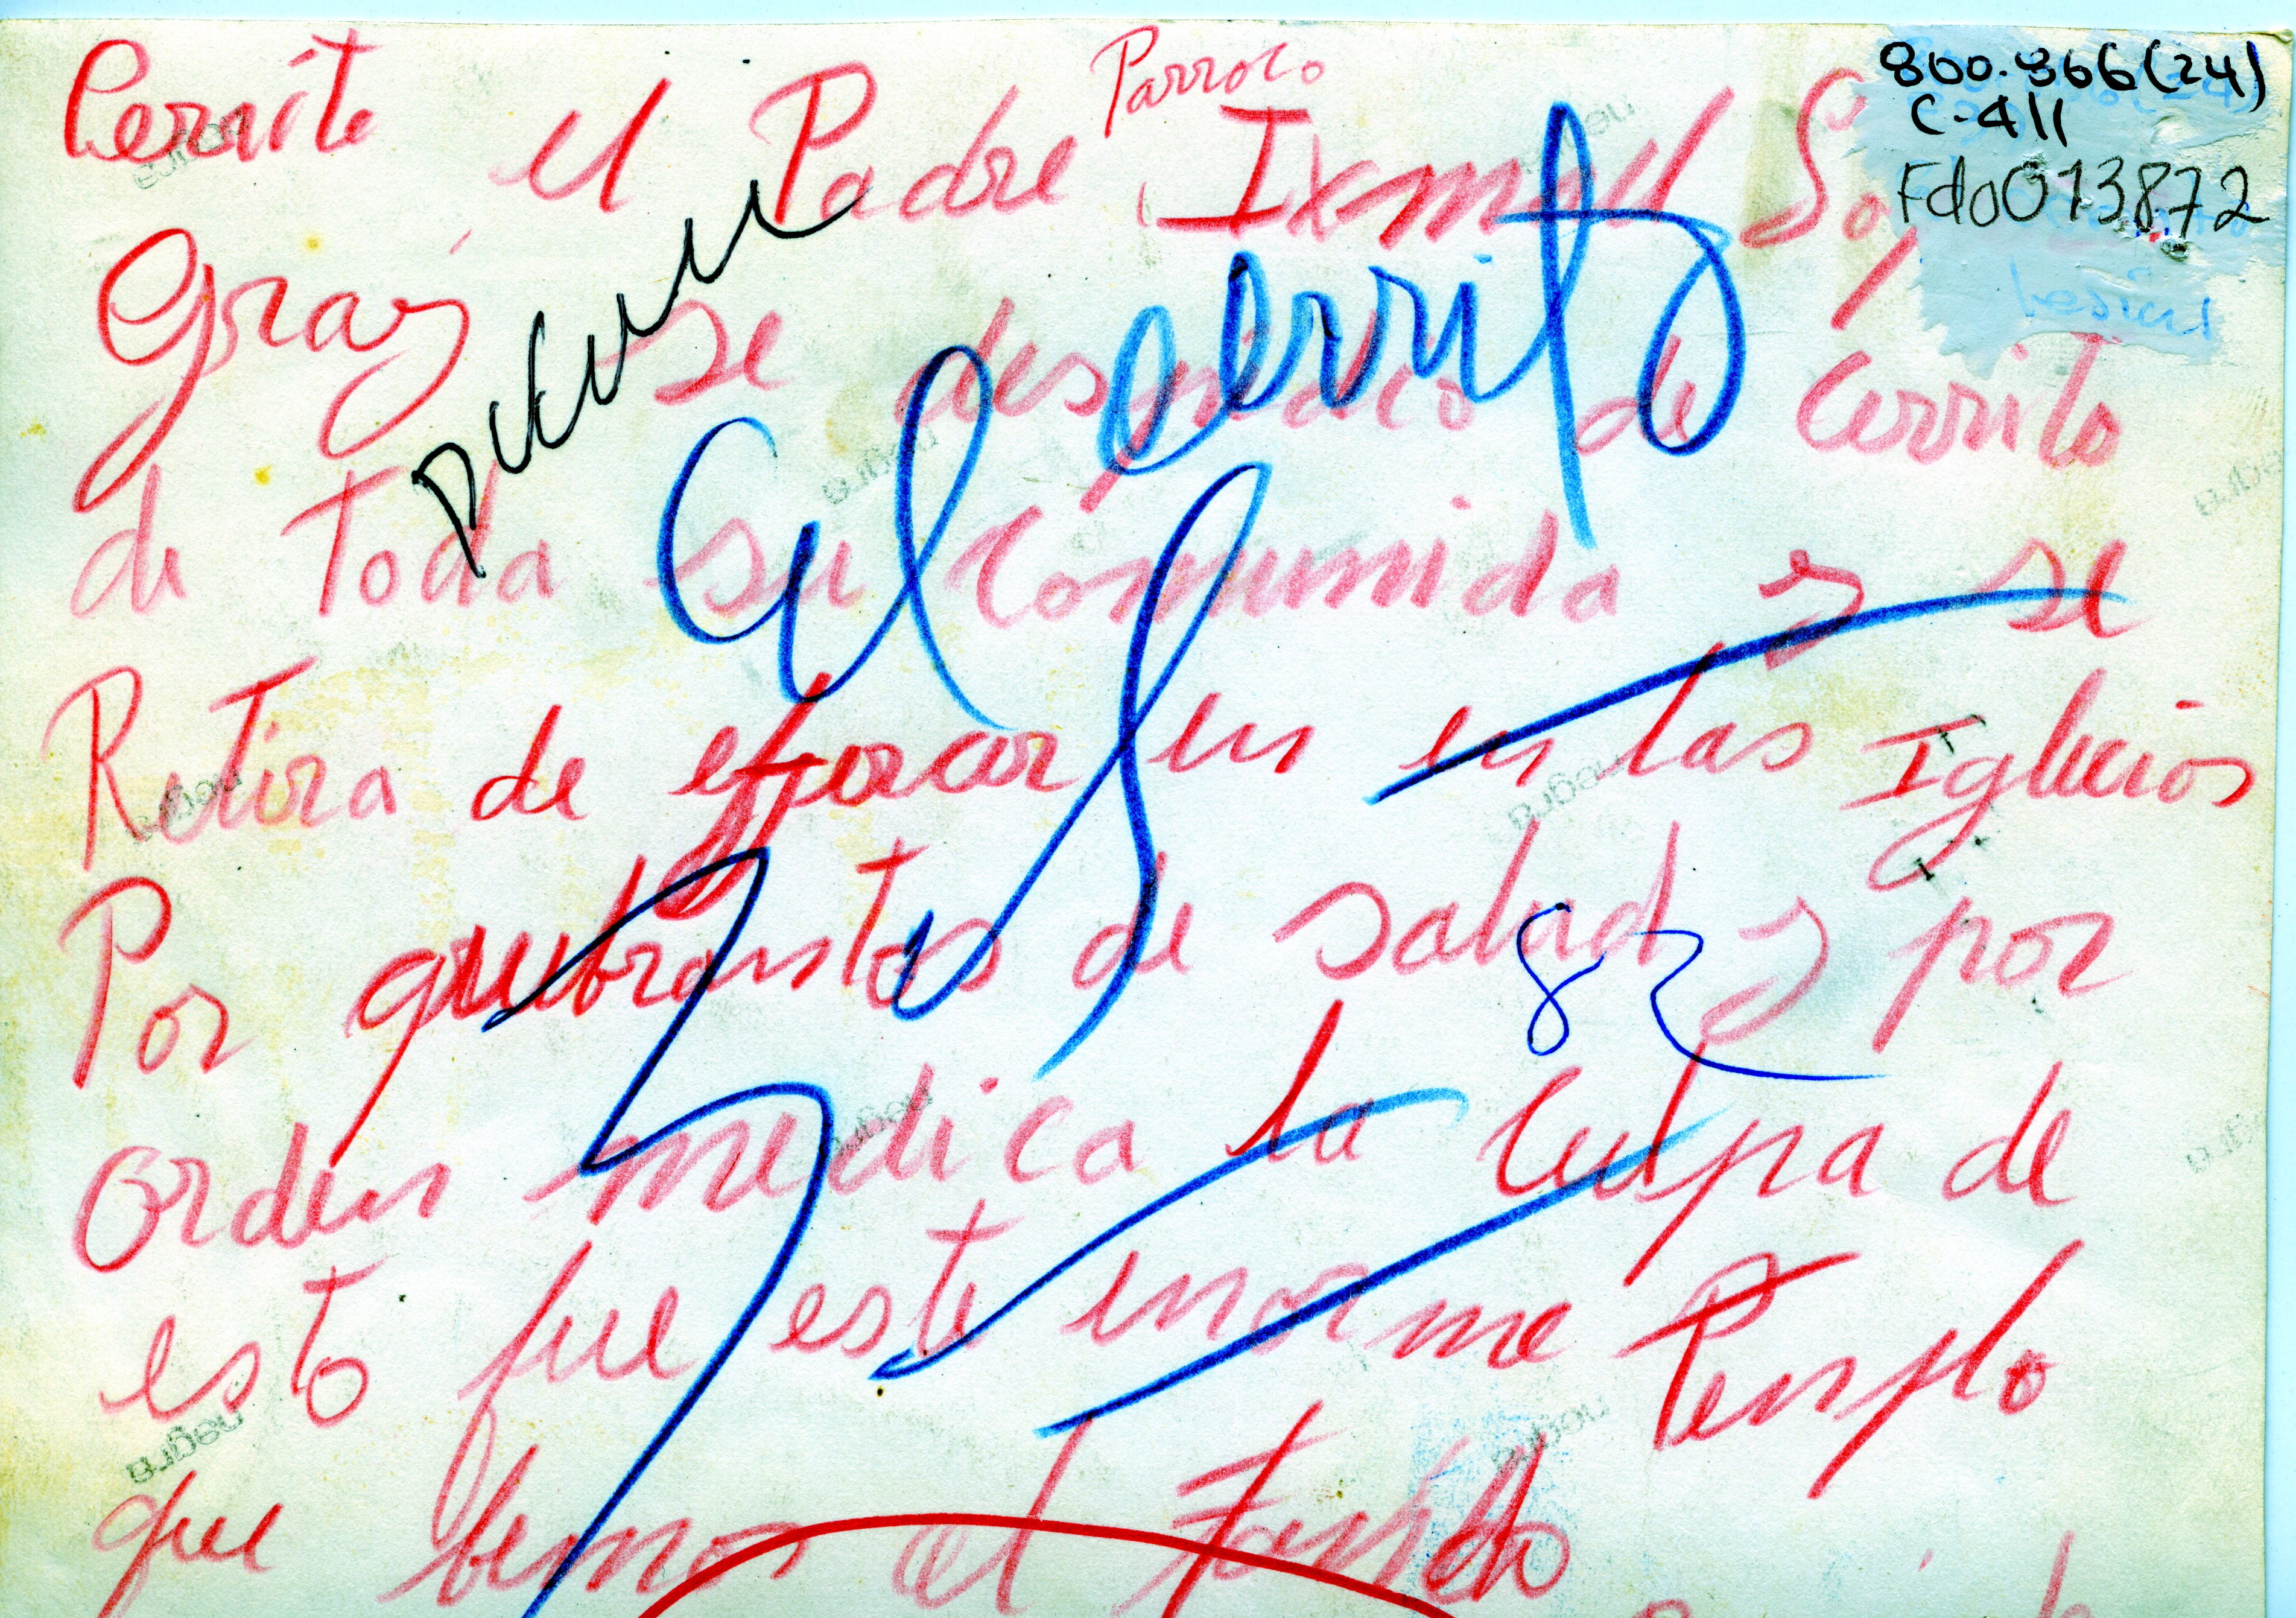 800.366(24)
C-411
Fdo013872
Parroco
Cerrito el Padre Ismael
Gray se despidio de Cerrito
de Toda su Comunida y se
Retira de en en las Iglecias
Por quebrantos de salud y por
Orden medica la Culpa de
esto fue este enorme Templo
que bemos al Fondo
el cerrito
82